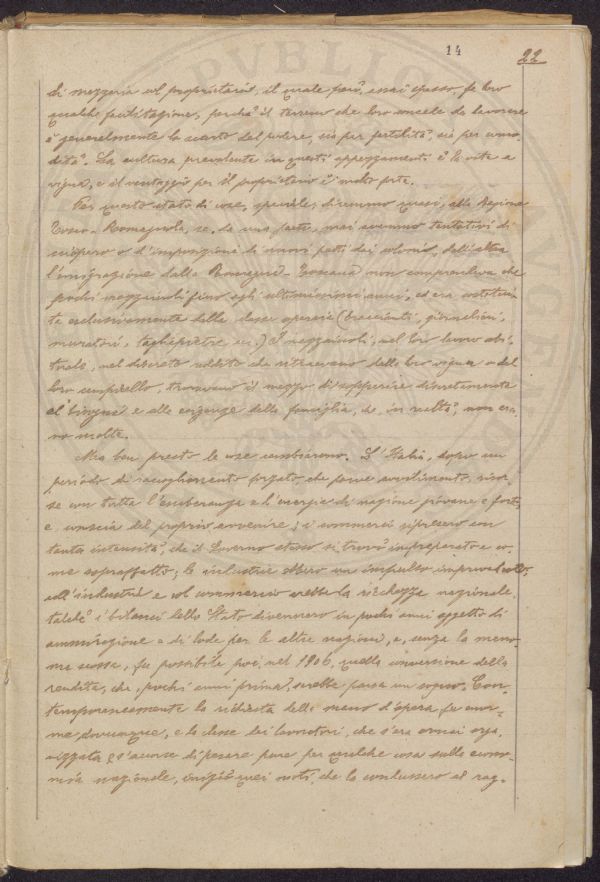 14
22
di mezzeria col proprietario, il quale però, assai spesso, fa loro
qualche facilitazione, perchè il terreno che loro concede da lavorare
è generalmente lo scarto del podere, sia per fertilità, sia per como-
dità. La cultura prevalente in questi appezzamenti è la vite a
vigna, e il vantaggio per il proprietario è molto forte.
Per questo stato di cose, speciale, diremmo quasi, alla Regione
Tosco-Romagnola, se, da una parte, mai avemmo tentativi di
sciopero o d'imposizione di nuovi patti dai coloni, dall'altra
l'emigrazione dalla Romagna-Toscana non comprendeva che
pochi mezzaiuoli fino agli ultimissimi anni, ed era costitui-
ta esclusivamente dalla classe operaia (braccianti, giornalieri,
muratori, tagliapietre ecc.) I mezzaiuoli, nel loro lavoro abi-
tuale, nel discreto reddito che ritraevano dalla loro vigna o dal
loro campicello, trovavano il mezzo di sopperire discretamente
ai bisogni e alle esigenze della famiglia, che, in realtà, non era-
no molte.
Ma ben presto le cose cambiarono. L'Italia, dopo un
periodo di raccoglimento forzato, che parve avvilimento, risor-
se con tutta l'esuberanza e l'energia di nazione giovane e forte,
e conscia del proprio avvenire; i commerci ripresero con
tanta intensità, che il Governo stesso si trovò impreparato e co-
me sopraffatto; le industrie ebbero un impulso
coll'industria e col commercio crebbe la ricchezza nazionale,
talchè i bilanci dello Stato divennero in pochi anni oggetto di
ammirazione e di lode per le altre nazioni, e, senza la meno-
ma scossa, fu possibile poi, nel 1906, quella conversione della
rendita, che, pochi anni prima, sarebbe parsa un sogno. Con-
temporaneamente la richiesta della mano d'opera fu enor-
me dovunque, e la classe dei lavoratori, che s'era ormai orga-
nizzata e s'accorse di pesare pure per qualche cosa sulla econo-
mia nazionale, iniziò quei moti, che la condussero al rag-